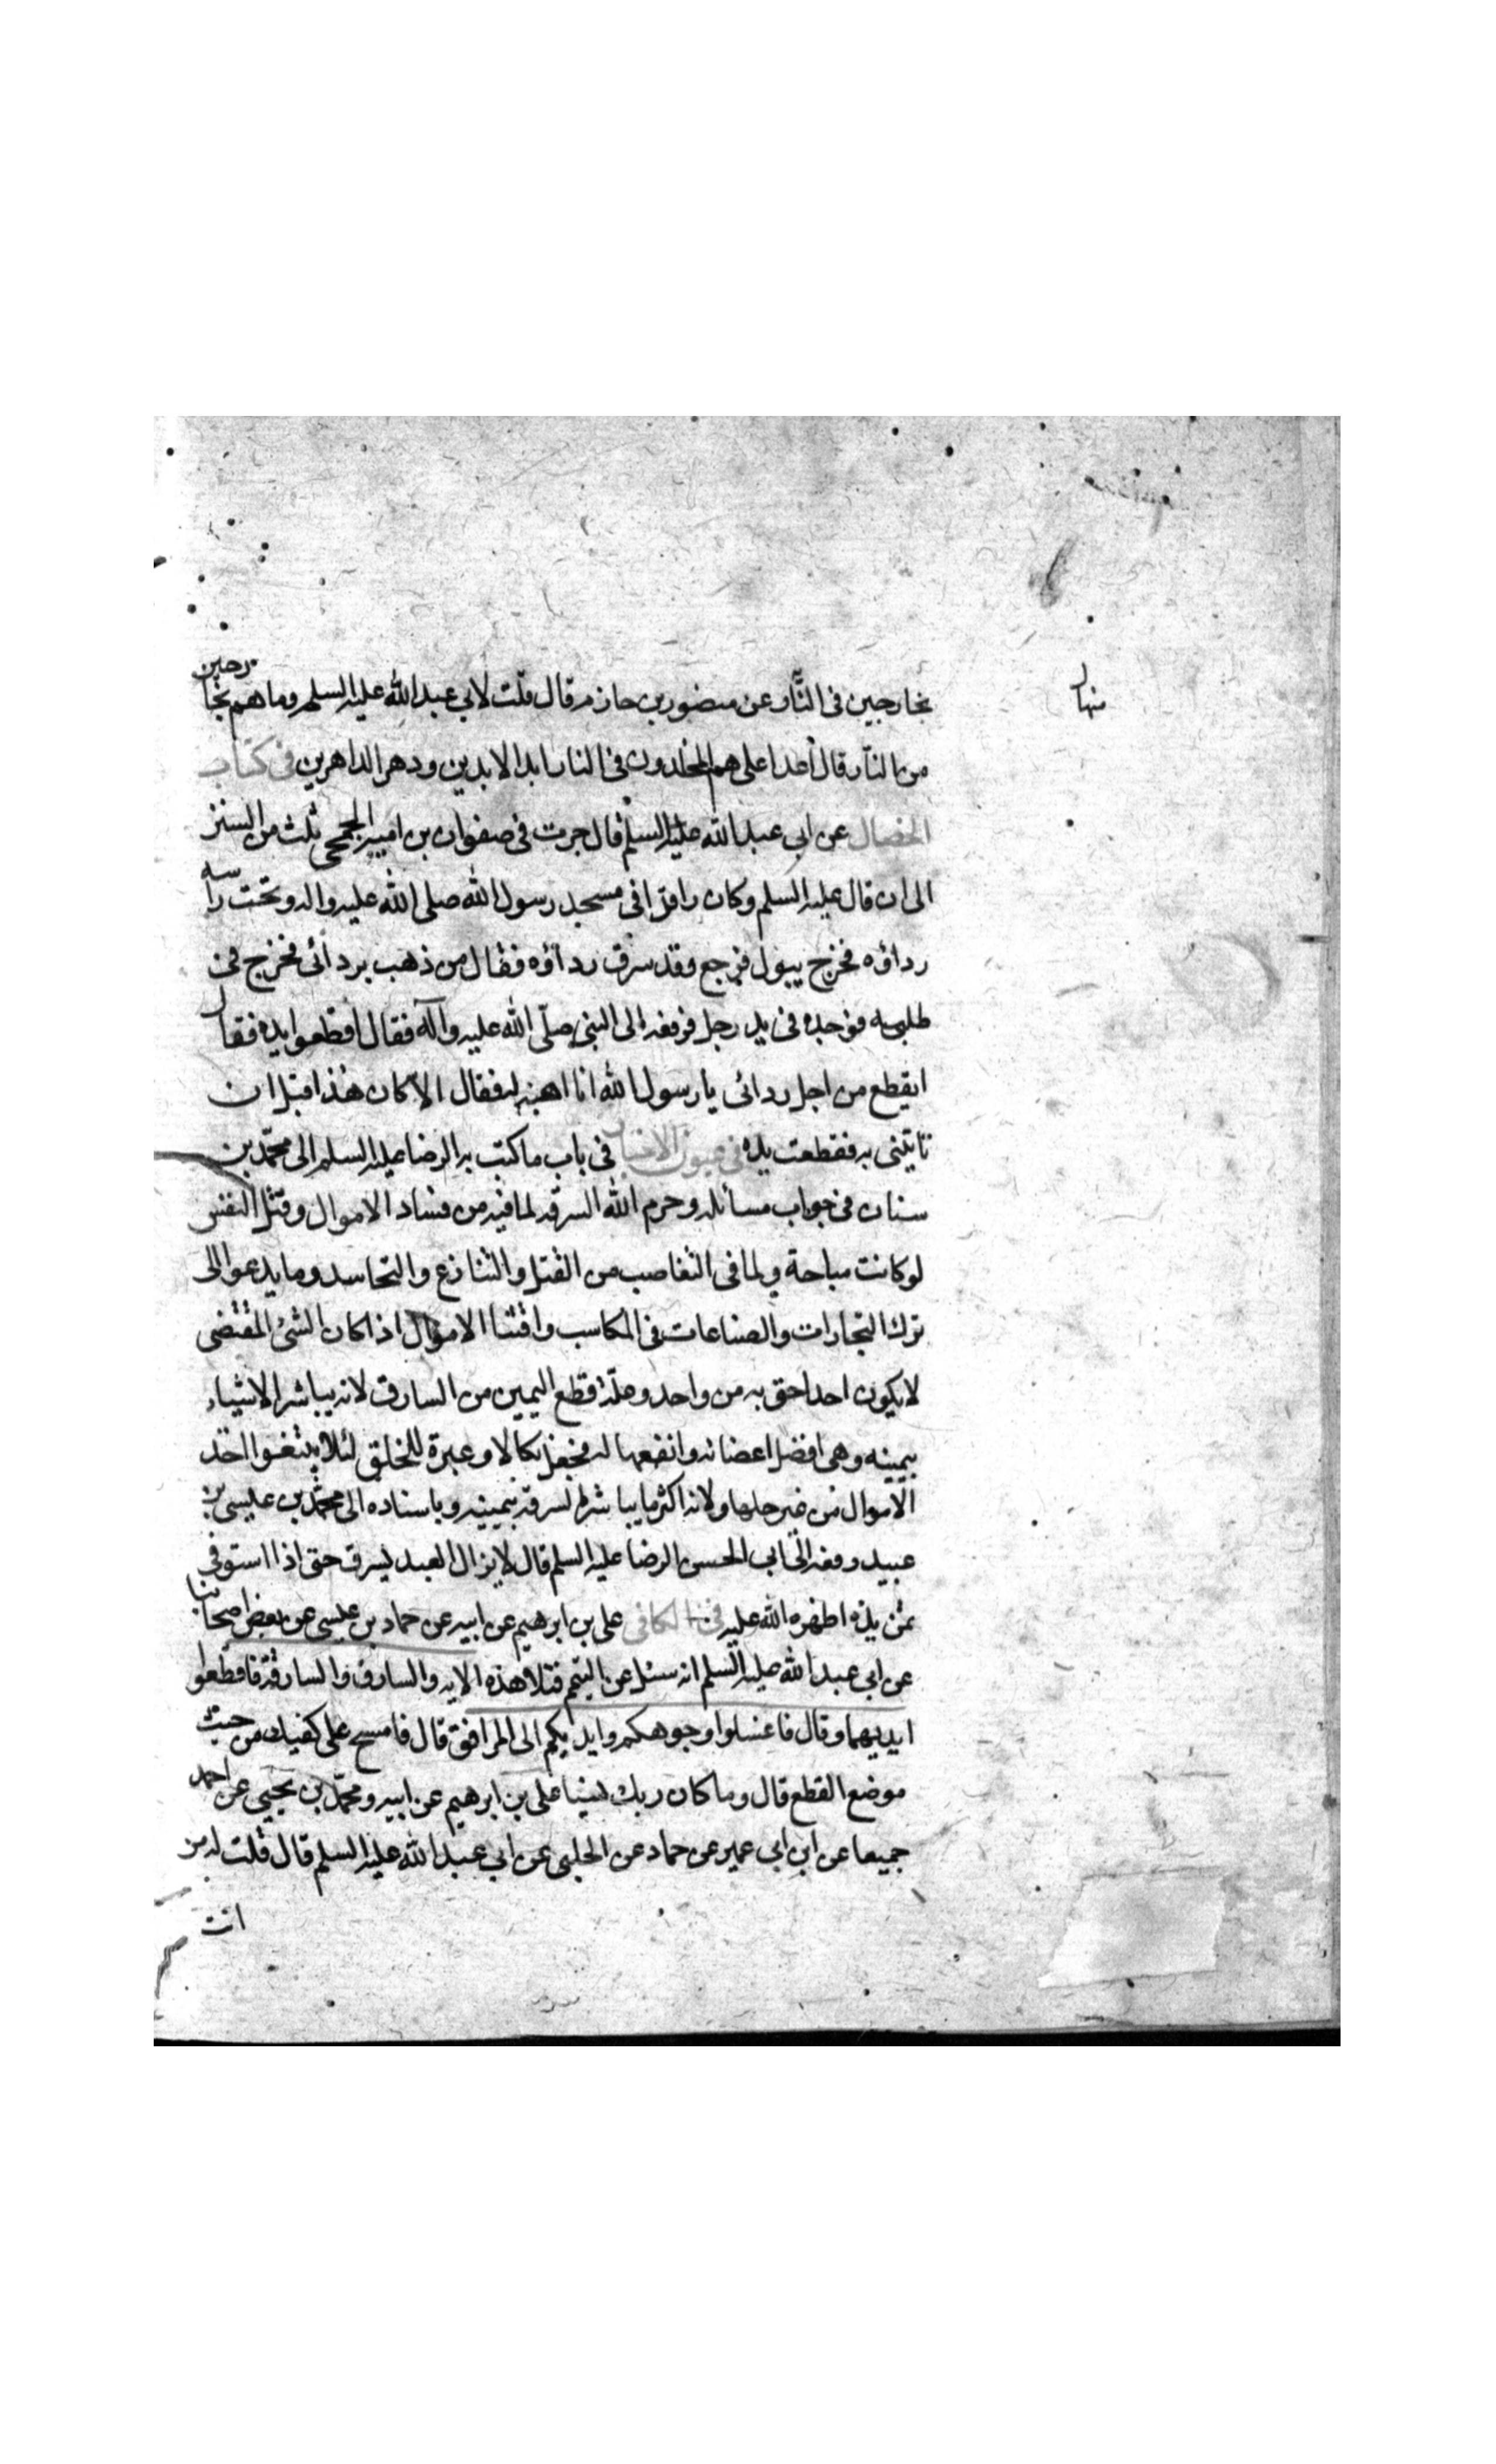 منها
بخارجين فى النّار عن منصور بن حازم قال قلت لابي عبد الله عليه السلم وما هم بخارجين
من النار قال اعدا على هم المخلدون فى النار ابد الابدين ودهر الداهرين فى كتاب
الخصال عن ابى عبد الله عليه السلم قال جرت فى صفوان بن امية الجمحى ثلث من السنن
الى ان قال عليه السلم وكان راقدا فى مسجد رسول الله صلى الله عليه واله وتحت راسه
رداؤه فخرج يبول فرجع وقد سرق رداؤه فقال من ذهب بردائى فخرج فى
طلبه فوجده فى يد رجل فرفعه الى النبى صلّى الله عليه وآله فقال اقطعوا يده فقال
ايقطع من اجل ردائى يا رسول الله انا اهبه له فقال الا كان هذا قبل ان
تاتينى به فقطعت يده فى عيون الاخبار فى باب ما كتب به الرضا عليه السلم الى محمّد بن
سنان فى جواب مسائله وحرم الله السرقه لما فيه من فساد الاموال وقتل النفس
لو كانت مباحة ولما فى التغاصب من القتل والتنازع والتحاسد وما يدعوا الى
ترك التجارات والصناعات فى المكاسب واقتنا الاموال اذا كان الشئ المقتضى
لا يكون احد احق به من واحد وعلّة قطع اليمين من السارق لانه يباشر الاشياء
بيمينه وهى افضل اعضائه وانفعها له فجعل نكالا وعبرة للخلق لئلا يبتغوا اخذ
الاموال من غير حلها ولانه اكثر ما يباشر السرقه بيمينه وباسناده الى محمّد بن عيسى بن
عبيد رفعه الى ابى الحسن الرضا عليه السلم قال لا يزال العبد يسرق حتى اذا استوفى
ثمن يده اظهره الله عليه فى الكافى على بن ابرهيم عن ابيه عن حماد بن عيسى عن بعض اصحابنا
عن ابى عبد الله عليه السلم انه سئل عن التيمم فتلا هذه الايه والسارق والسارقة فاقطعوا
ايديهما وقال فاغسلوا وجوهكم وايديكم الى المرافق قال فامسح على كفيك من حيث
موضع القطع قال وما كان ربك نسيا على بن ابرهيم عن ابيه ومحمّد بن يحيى عن احمد
جميعا عن ابن ابى عمير عن حماد عن الحلبى عن ابى عبد الله عليه السلم قال قلت له من
انت